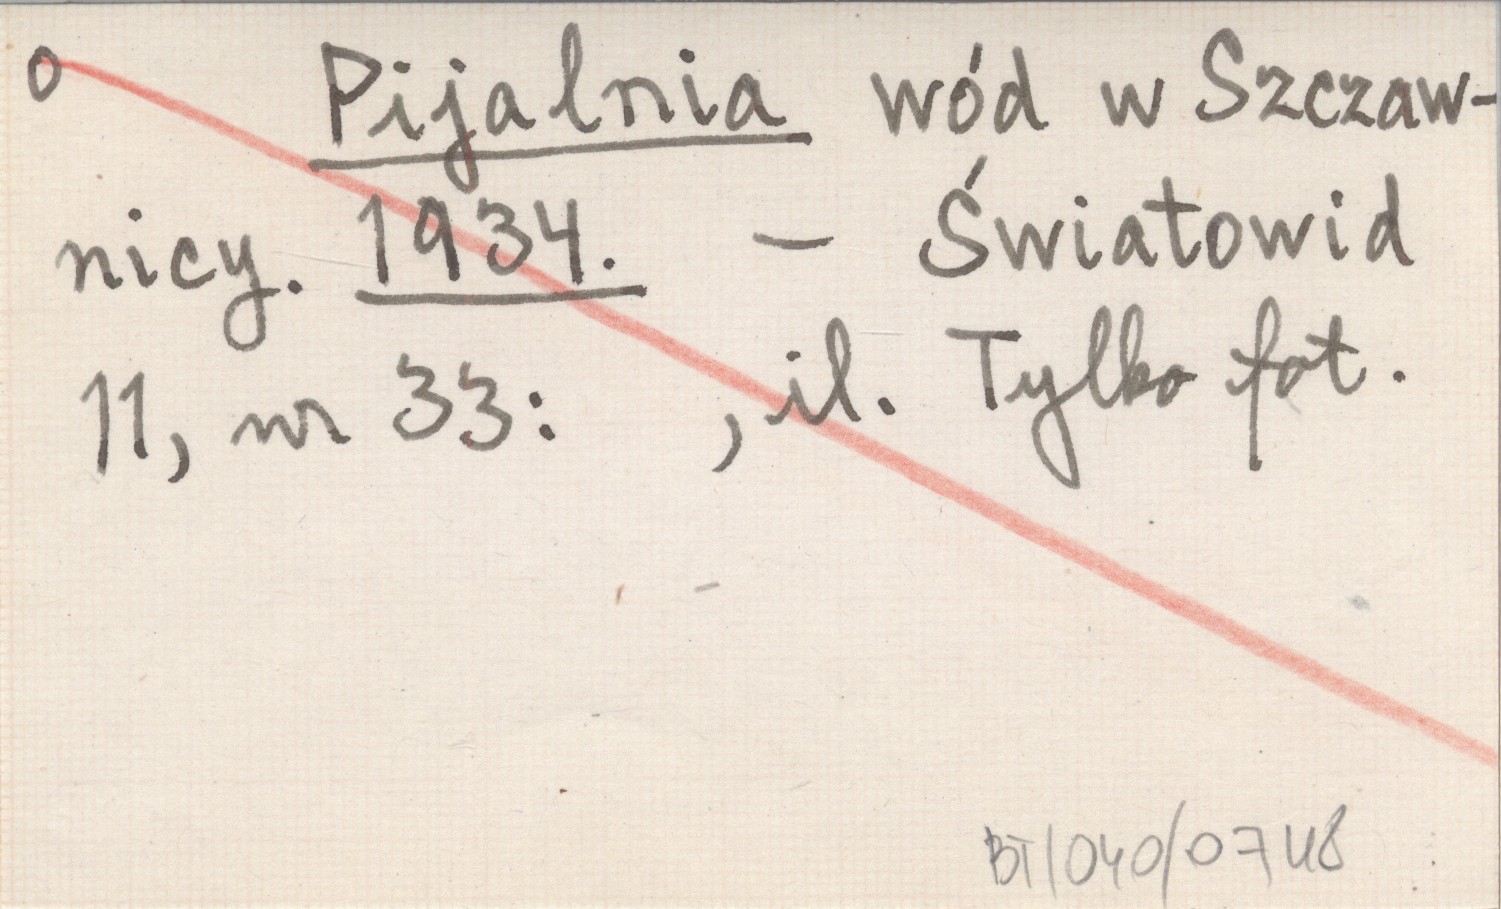 0 Pijalnia wód w Szczaw-
nicy. 1934. – Światowid
11, nr 33: , il. Tylko fot.
BT/040/0748